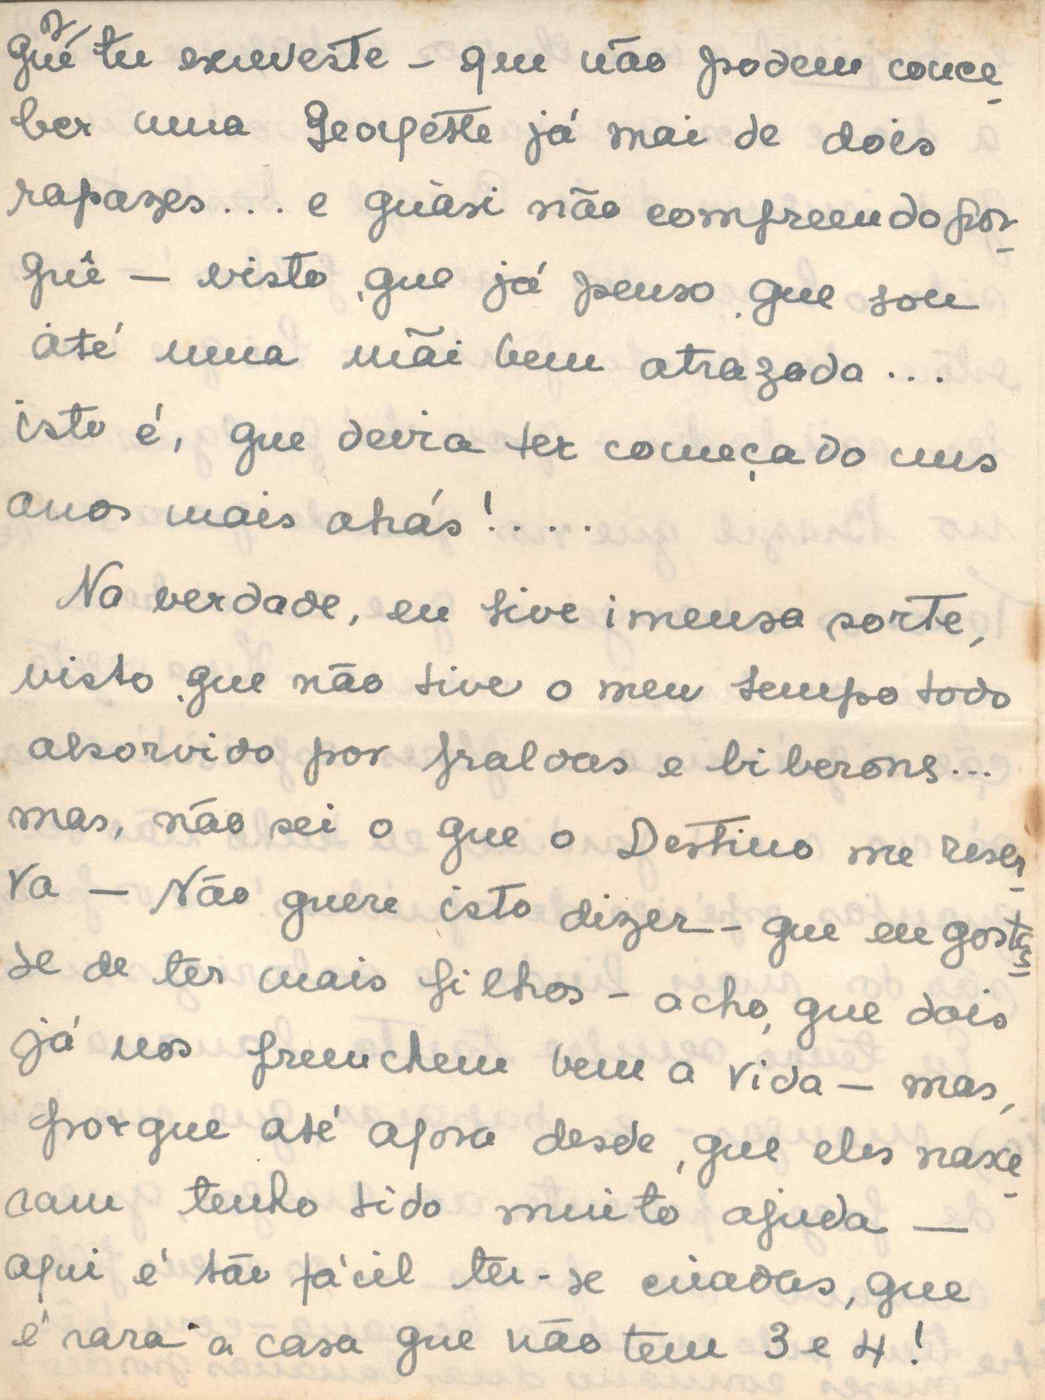 que tu escreveste - que não podem conce-
ber uma Georgette já mai de dois
rapazes... e quàsi não compreendo por-
quê - visto que já penso que sou
até uma mãi bem atrazada...
isto é, que devia ter começado uns
anos mais atrás!....
Na verdade, eu tive imensa sorte,
visto que não tive o meu tempo todo
absorvido por fraldas e biberons...
mas, não sei o que o Destino me reser-
va - Não quere isto dizer - que eu gostas-
se de ter mais filhos - acho, que dois
já nos preenchem bem a vida - mas,
porque até agora desde, que eles nasce-
ram tenho tido muito ajuda -
aqui é tão fácil ter-se criadas, que
é rara a casa que não tem 3 e 4!